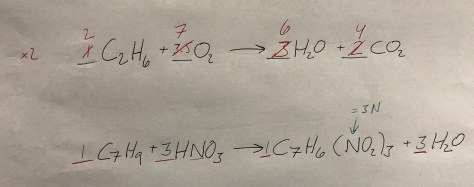 x2 2 1 C₂H₆ + 7 3.5 O₂ → 6 3 H₂O + 4 2 CO₂
= 3N
1 C₇H₉ + 3 HNO₃ → 1 C₇H₆ (NO₂)₃ + 3 H₂O